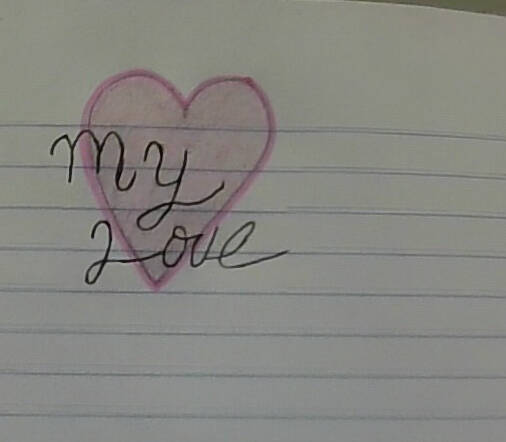 my
Love